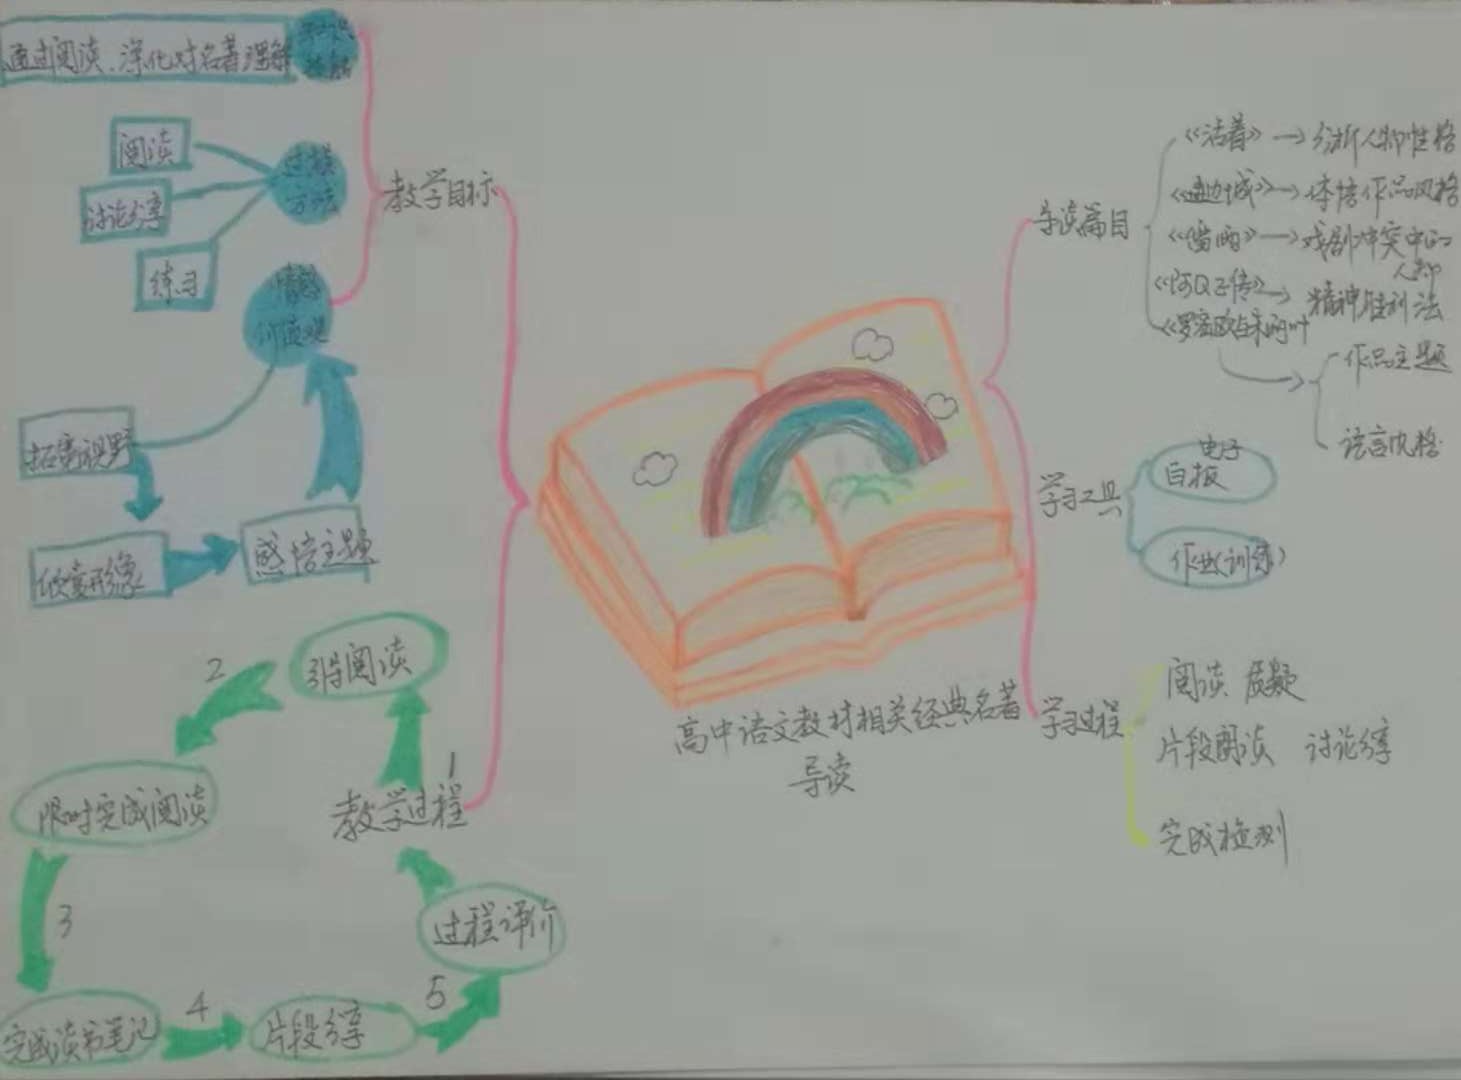 通过阅读、深化对名著理解
知识
技能
阅读
讨论分享
练习
过程
方法
情感
价值观
教学目标
拓宽视野
欣赏形象
感悟主题
引导阅读
2
限时完成阅读
1
教学过程
3
完成读书笔记
4
片段分享
5
过程评价
高中语文教材相关经典名著
导读
导读篇目
《活着》→分析人物性格
《边城》→体悟作品风格
《雷雨》→戏剧冲突中的
人物
《阿Q正传》→精神胜利法
《罗密欧与朱丽叶
作品主题
语言风格
学习工具
电子
白板
作业(训练)
学习过程
阅读 质疑
片段阅读 讨论分享
完成检测